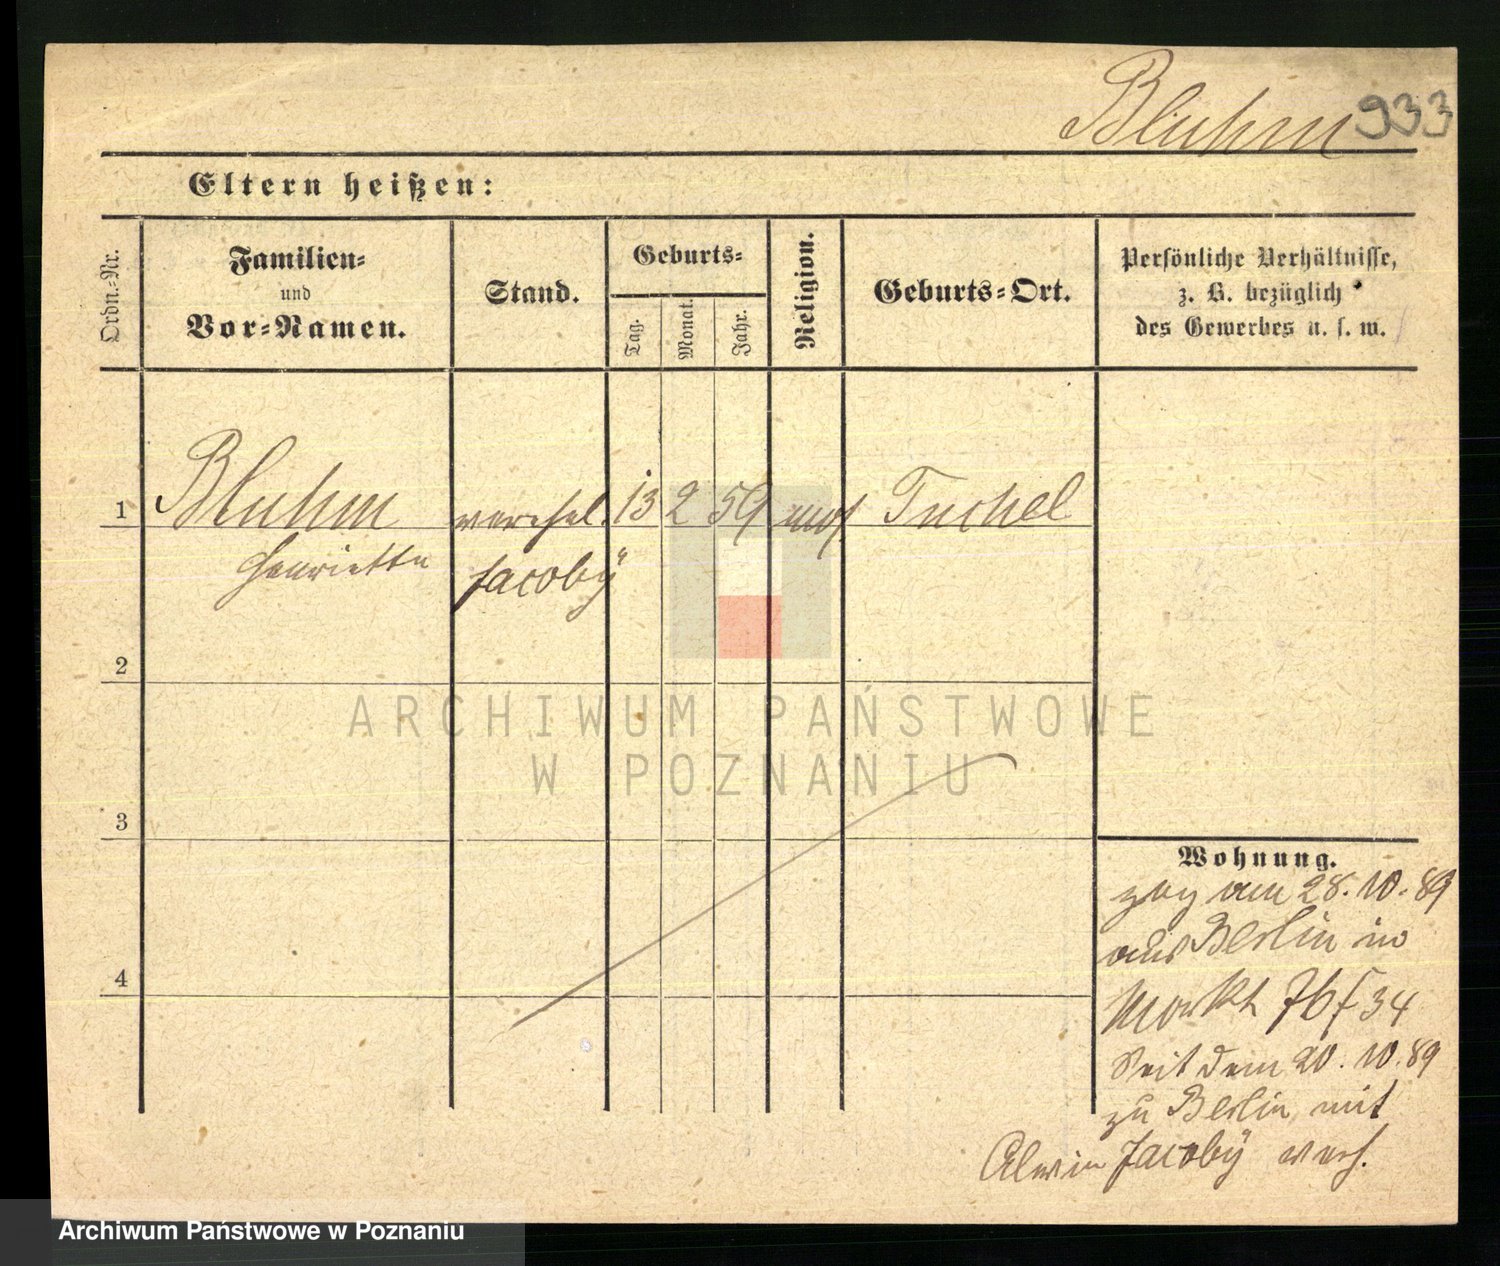 Bluhm 933
Eltern heißen:
Ordn.-Nr.
Familien-
und
Vor-Namen.
Stand.
Geburts-
Tag.
Monat.
Jahr.
Religion.
Geburts-Ort.
Persönliche Verhältnisse,
z. B. bezüglich
des Gewerbes u. s. w.
1 Bluhm verehel. 13 2 59 mos. Tuchel
Henriette Jacoby
2
ARCHIWUM PAŃSTWOWE
W POZNANIU
3
4
Wohnung.
zog am 28.10.89
aus Berlin in
Markt 34
Seit dem 20.10.89
zu Berlin mit
Alwin Jacoby verh.
Archiwum Państwowe w Poznaniu